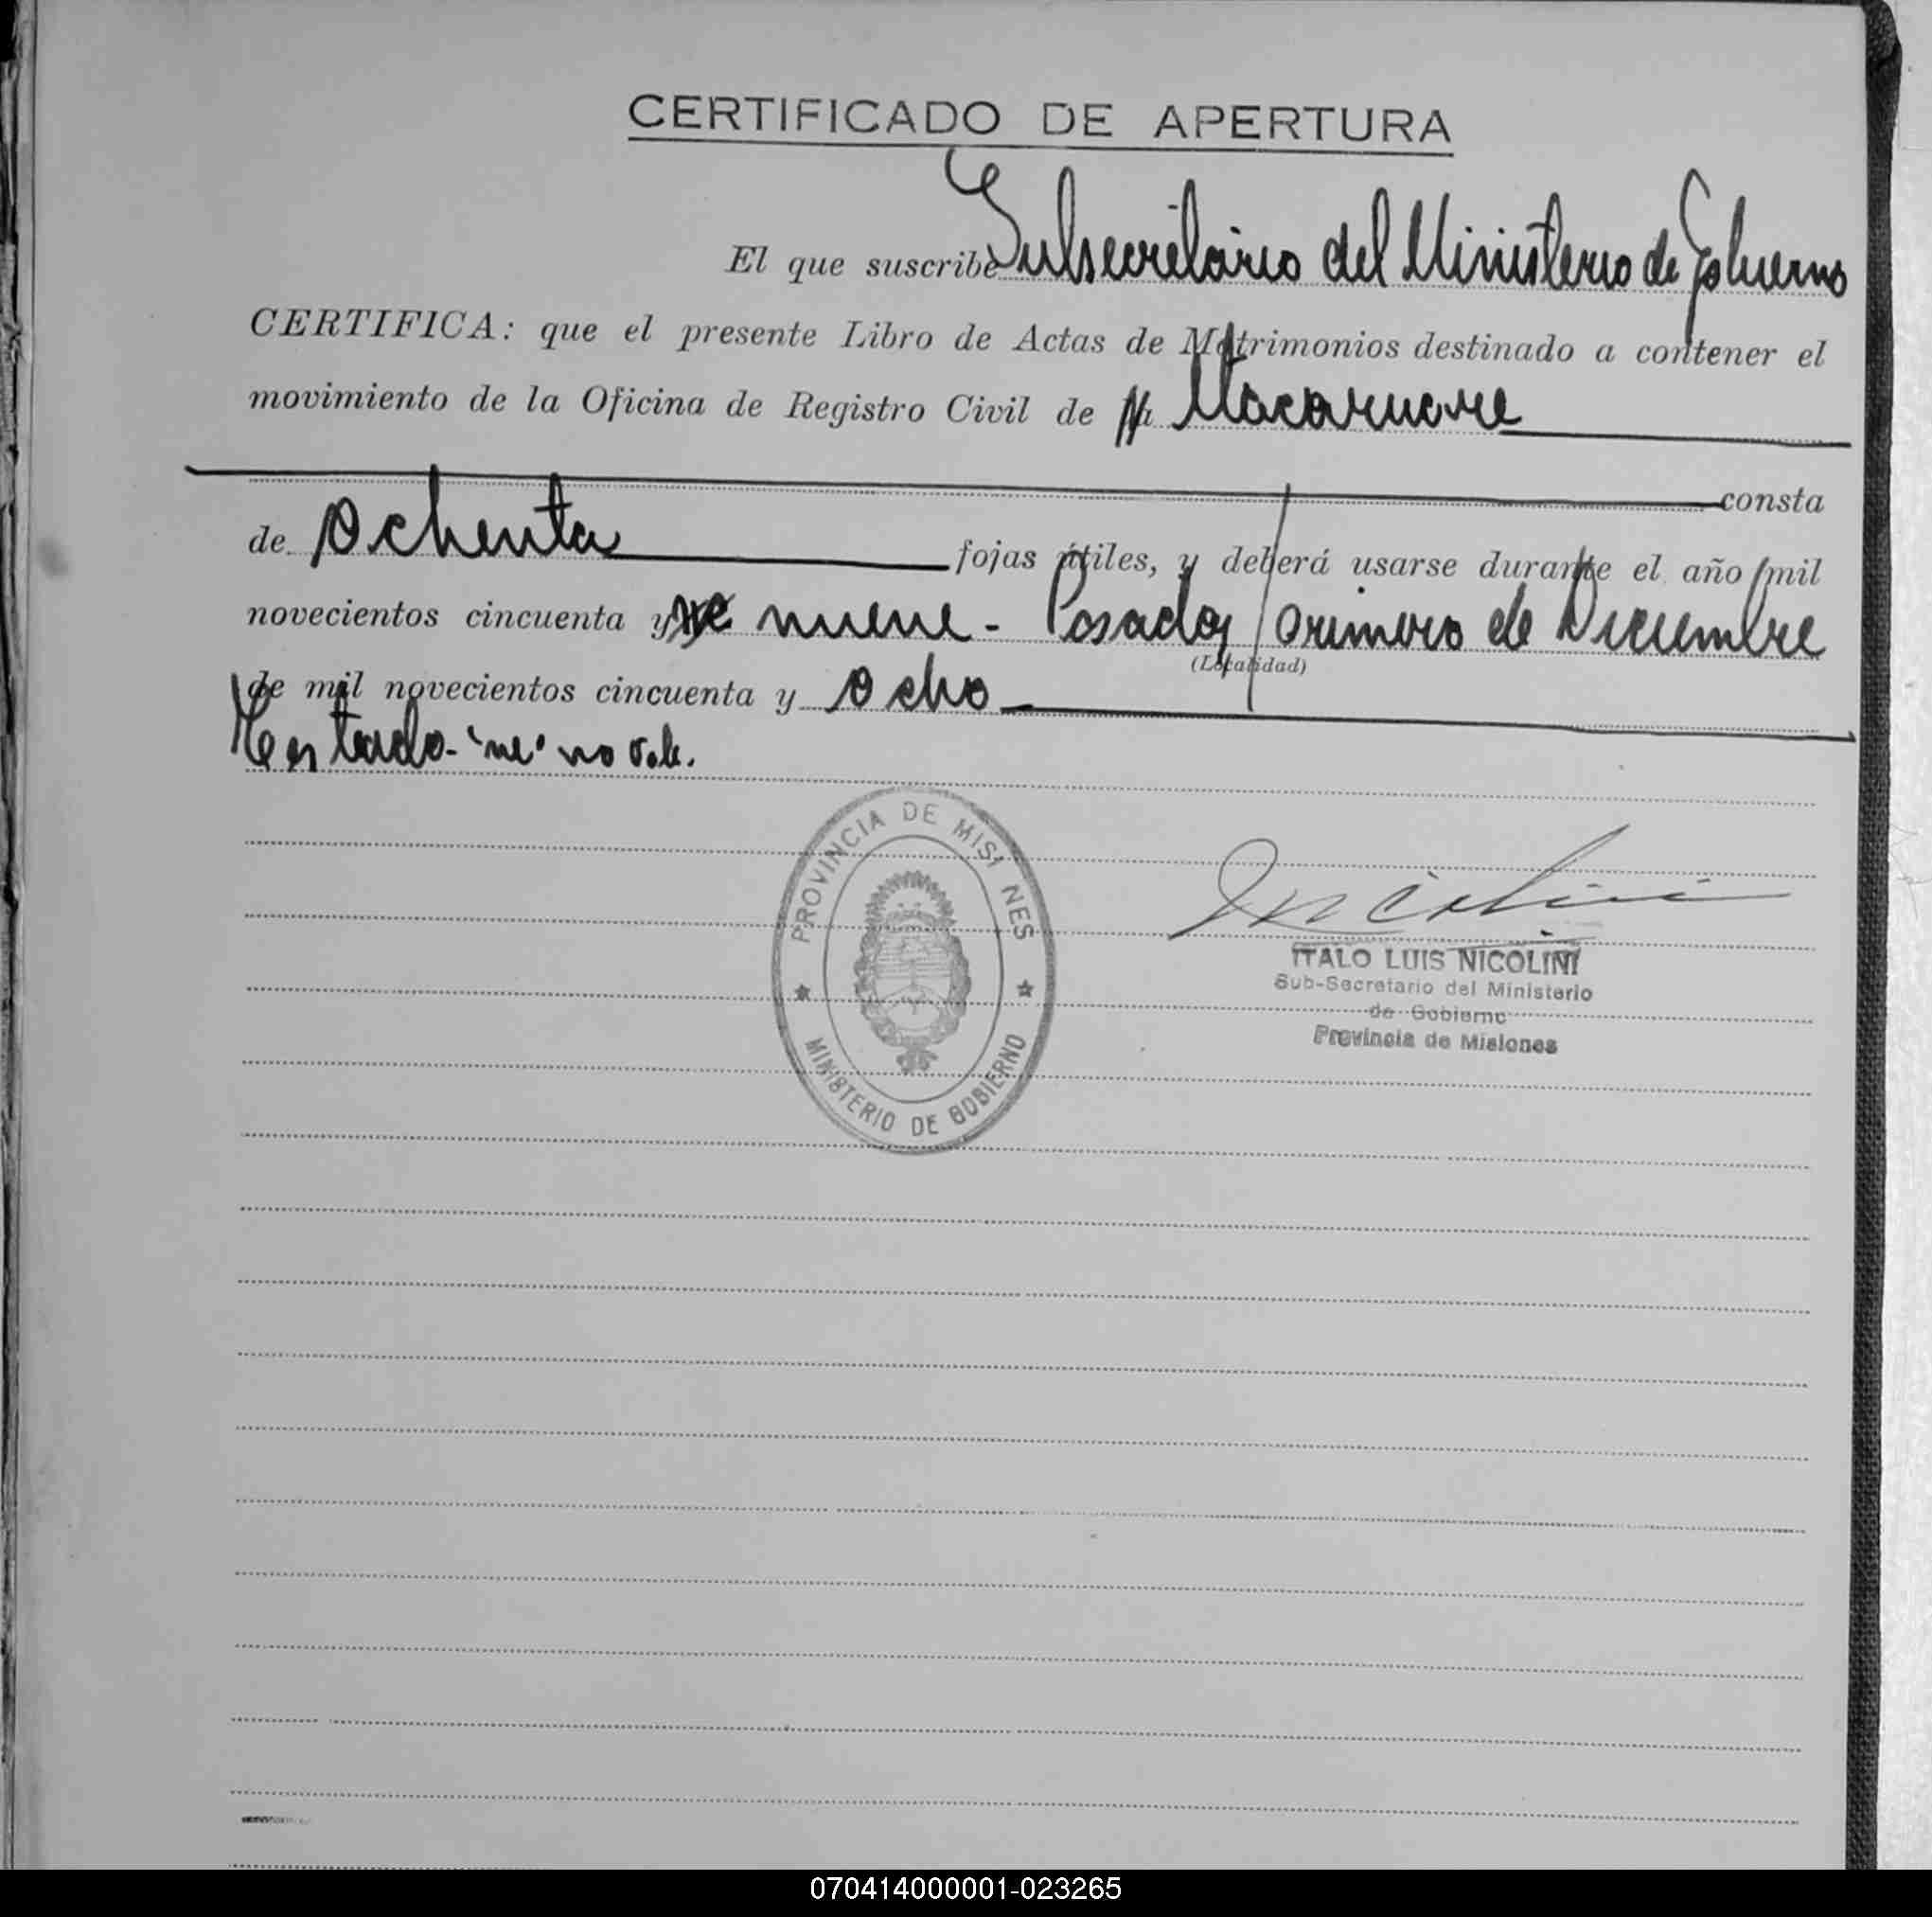 CERTIFICADO DE APERTURA
El que suscribe Subsecretario del Ministerio de Gobierno
CERTIFICA: que el presente Libro de Actas de Matrimonios destinado a contener el
movimiento de la Oficina de Registro Civil de
consta
de ochenta fojas útiles, y deberá usarse durante el año mil
novecientos cincuenta y nueve - Posadas primero de Diciembre
(Localidad)
de mil novecientos cincuenta y ocho
Testado- "ne" no vale.
PROVINCIA DE MISI NES
MINISTERIO DE GOBIERNO
ITALO LUIS NICOLINI
Sub-Secretario del Ministerio
de Gobierno
Provincia de Misiones
070414000001-023265